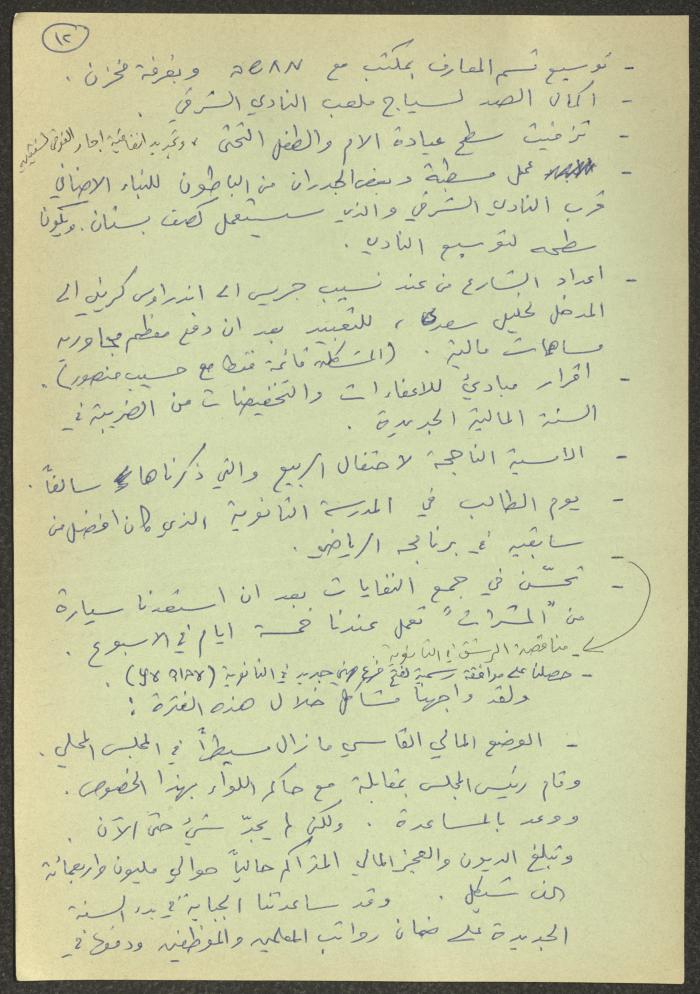 ١٢
- توسيع قسم المعارف بمكتب مع وبغرفة مخزن .
- اكمال الصد لسياج ملعب النادي الشرقي .
- تزفيت سطح عيادة الام والطفل التحتى ، وتجديد اتفاقية ايجار
- عمل مسطبة وبعض الجدران من الباطون للبناء الاضافي
قرب النادي الشرقي والذي سيستعمل كصف بستان . ويكون
سطحه لتوسيع النادي .
- اعداد الشارع من عند نسيب جريس الى اندراوس كريني الى
المدخل لخليل سعد ، للتعبيد بعد ان دفع معظم مجاوريه
مساهمات مالية . (المشكلة قائمة فقط مع حسيب منصور) .
- اقرار مبادئ للاعفاءات والتخفيضات من الضريبة في
السنة المالية الجديدة .
- الامسية الناجحة لاحتفال الربيع والتي ذكرناها سالفاً .
- يوم الطالب في المدرسة الثانوية الذي كان افضل من
سابقيه في برنامجه الرياضي .
- تحسّن في جمع النفايات بعد ان استعدنا سيارة
من "المشرات" تعمل عندنا خمسة ايام في الاسبوع .
- مناقصة في الثانوية
- حصلنا على موافقة رسمية لفتح فرع مهني جديد في الثانوية
ولقد واجهتنا مشاكل خلال هذه الفترة :
- الوضع المالي القاسي ما زال مسيطراً في المجلس المحلي .
وقام رئيس المجلس بمقابلة مع حاكم اللواء بهذا الخصوص .
ووعد بالمساعدة . ولكن لم يجدّ شيء حتى الآن .
وتبلغ الديون والعجز المالي المتراكم حالياً حوالي مليون واربعمائة
الف شيكل . وقد ساعدتنا الجباية في بدء السنة
الجديدة على ضمان رواتب المعلمين والموظفين ودفعها في